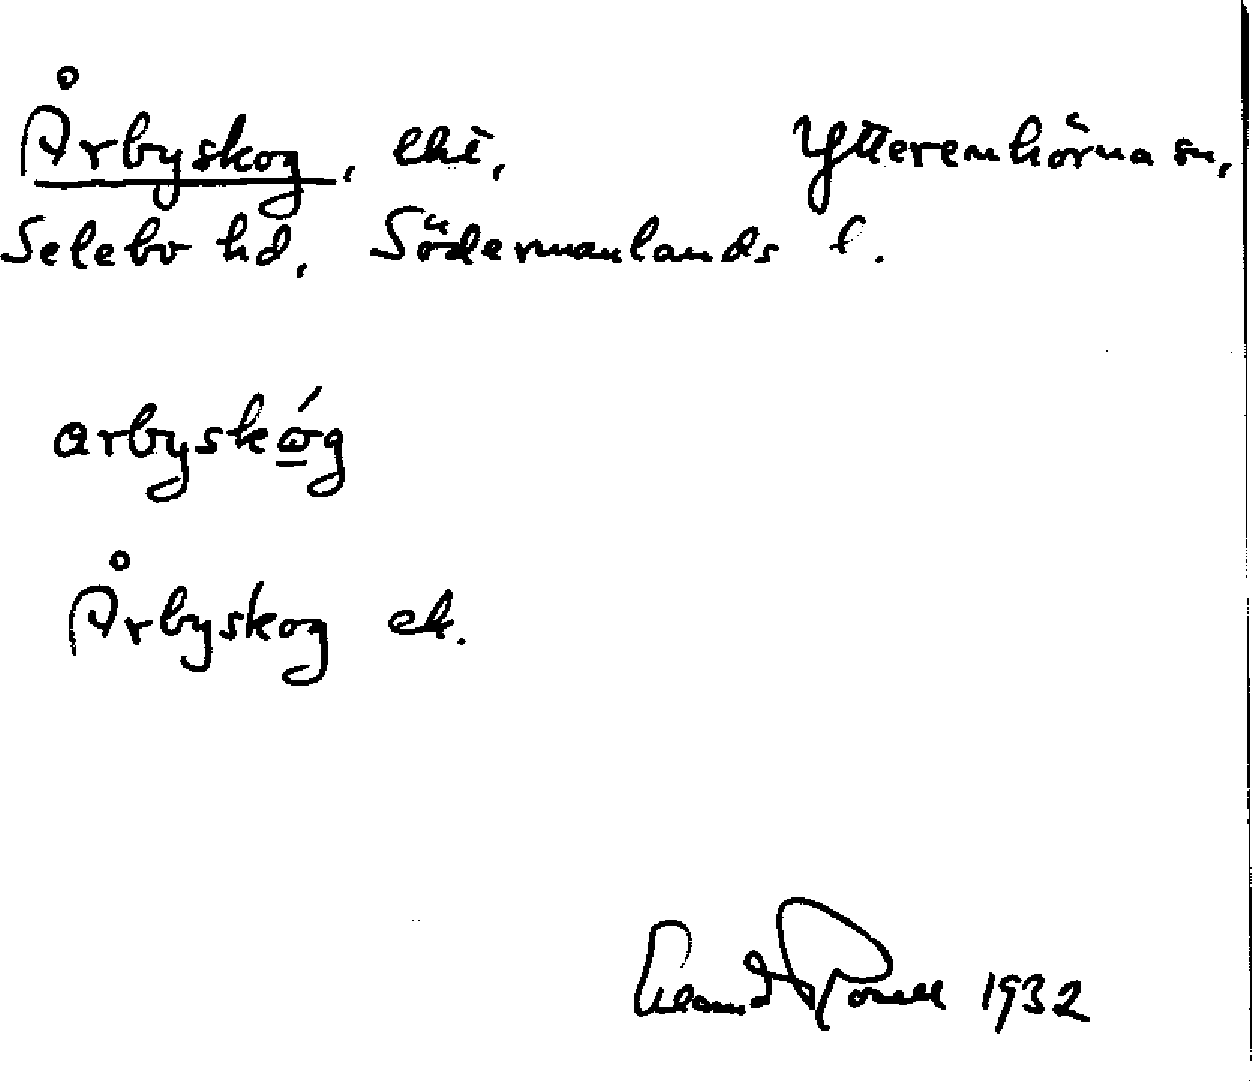 Årbyskog, ehi, Ytterenhörna sn,
Selebo hd, Södermanlands l.
arbyskóg
Årbyskog eh.
1932